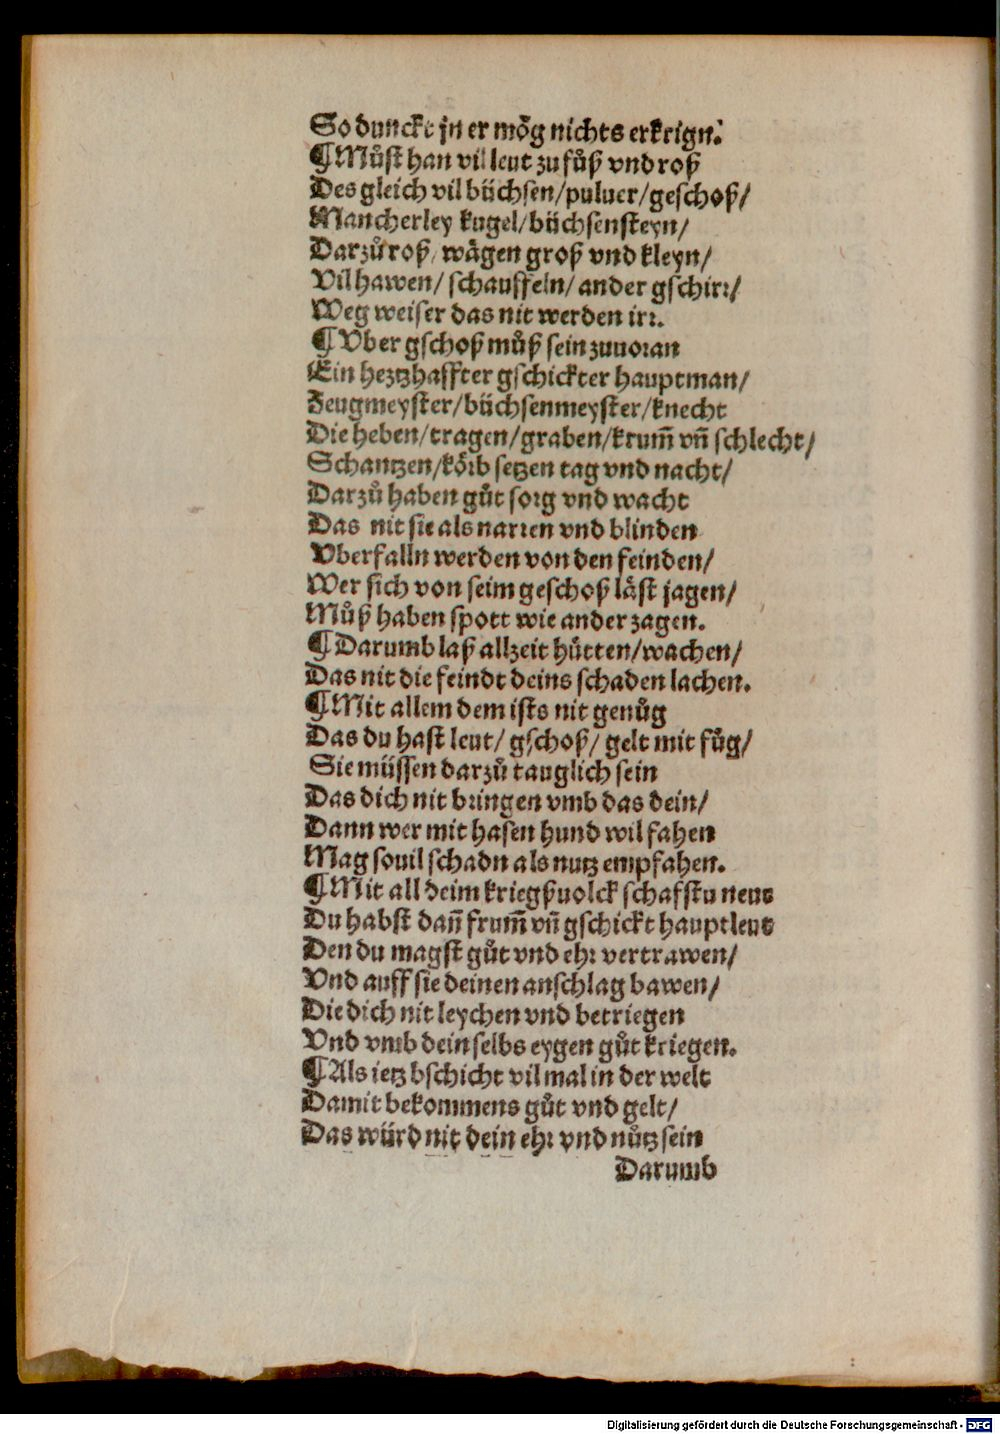 So dunckt jn er mög nichts erkrign.
¶ Můst han vil leut zu fůß vnd roß
Des gleich vil büchsen/puluer/geschoß/
Mancherley kugel/büchsensteyn/
Darzů roß/ wägen groß vnd kleyn/
Vil hawen/ schauffeln/ ander gschirr/
Weg weiser das nit werden irr.
¶ Vber gschoß můß sein zuuoran
Ein hertzhaffter gschickter hauptman/
Zeugmeyster/büchsenmeyster/knecht
Die heben/tragen/graben/krum̄ vn̄ schlecht/
Schantzen/körb setzen tag vnd nacht/
Darzů haben gůt sorg vnd wacht
Das nit sie als narren vnd blinden
Vberfalln werden von den feinden/
Wer sich von seim geschoß läst jagen/
Můß haben spott wie ander zagen.
¶ Darumb laß allzeit hůtten/wachen/
Das nit die feindt deins schaden lachen.
¶ Mit allem dem ists nit genůg
Das du hast leut/ gschoß/ gelt mit fůg/
Sie müssen darzů tauglich sein
Das dich nit bringen vmb das dein/
Dann wer mit hasen hund wil fahen
Mag souil schadn als nutz empfahen.
¶ Mit all deim kriegßuolck schafstu neut
Du habst dan̄ frum̄ vn̄ gschickt hauptleut
Den du magst gůt vnd ehr vertrawen/
Vnd auff sie deinen anschlag bawen/
Die dich nit leychen vnd betriegen
Vnd vmb dein selbs eygen gůt kriegen.
¶ Als ietz bschicht vil mal in der welt
Damit bekommens gůt vnd gelt/
Das würd nit dein ehr vnd nůtz sein
Darumb
Digitalisierung gefördert durch die Deutsche Forschungsgemeinschaft - DFG